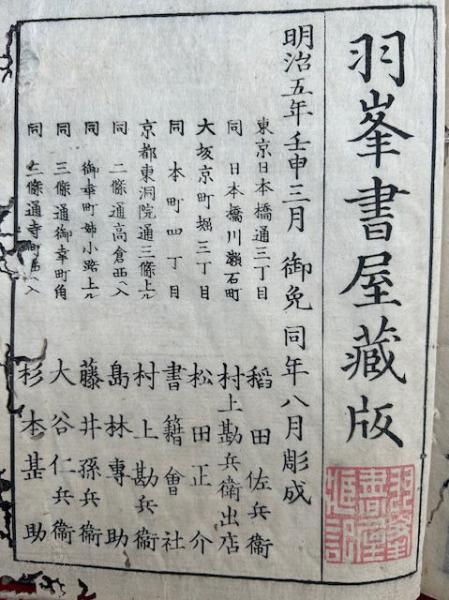 羽峯書屋藏版
明治五年壬申三月 御免 同年八月彫成
東京日本橋通三丁目 稻田佐兵衞
同 日本橋川瀬石町 村上勘兵衞出店
大坂京町堀三丁目 松田正介
同 本町四丁目 書籍會社
京都東洞院通三條上ル 村上勘兵衞
同 二條通高倉西ヘ入 島林專助
同 御幸町姉小路上ル 藤井孫兵衞
同 三條通御幸町角 大谷仁兵衞
同 二條通寺町西ヘ入 杉本甚助
羽峯書屋